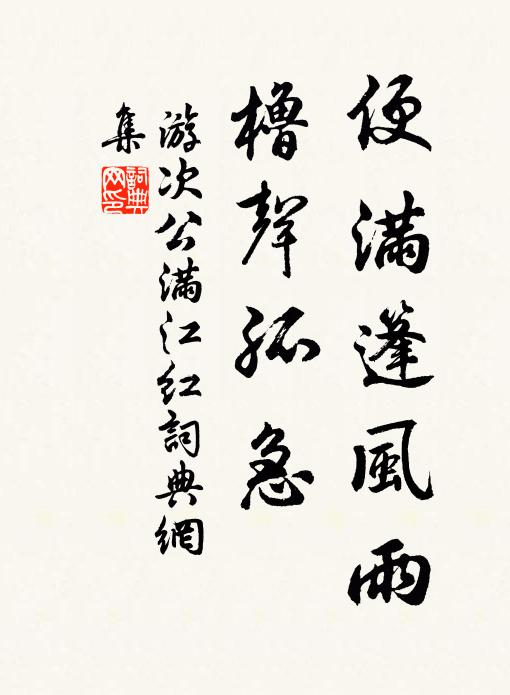 便滿篷風雨
櫓聲孤急
游次公滿江紅詞典網
集
詞典
网印